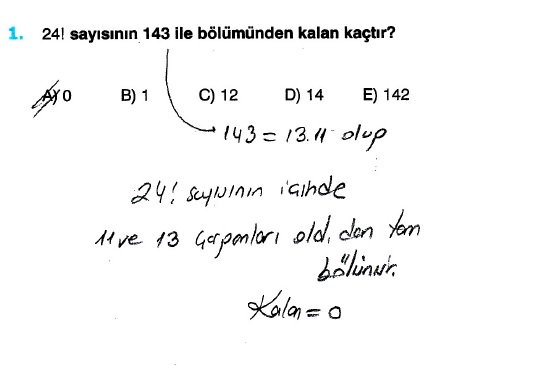 1. 24! sayısının 143 ile bölümünden kalan kaçtır?
A) 0 B) 1 C) 12 D) 14 E) 142
143 = 13.11 olup
24! sayısının içinde
11 ve 13 çarpanları old. dan tam
bölünür.
Kalan = 0